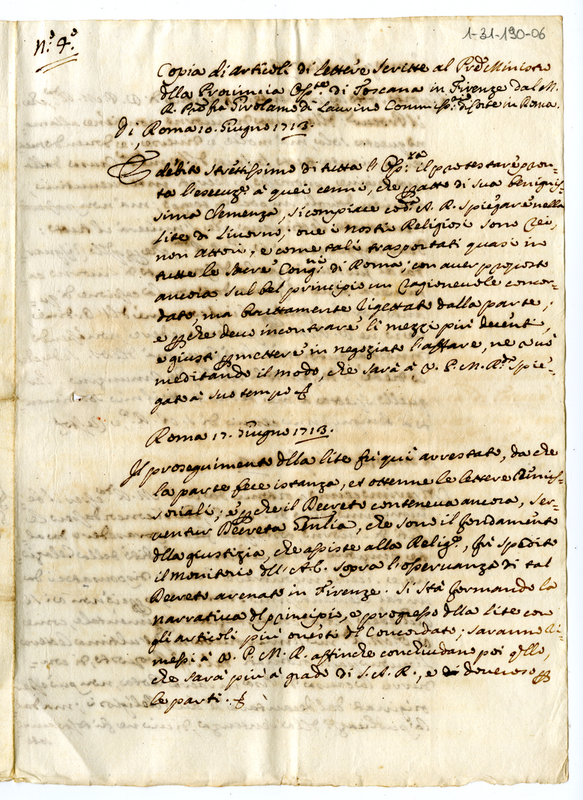 1-31-190-06
N.º 4.º
Copia di articoli di lettere scritte al Prõe Ministro
dlla Provincia Oss.te di Toscana in Firenze dal M.
R. P̃re fra Girolamo di Laurino Comm.rio di Lite in Roma.
Di Roma 10. Giugno 1713.
È debito strettissimo di tutta l'Oss.za il protestare pron-
ta l'esecuz.e à quei cenni, che p parte di sua benignis-
sima Clemenza, si compiace cod.a A. R. spiegare nella
lite di Livorno; ove i nostri Religiosi sono Rei,
non Attori, e come tali trasportati quasi in
tutte le Sacre Cong.ni di Roma; con aver proposto
ancora sul bel principio un ragionevole concor-
dato, ma bruttamente rigettato dalla parte;
e pche devo incontrare li mezzi più decenti,
e giusti p mettere in negoziato l'affare, ne vò
meditando il modo, che sarà à V. P. M. R. spie-
gato à suo tempo
Roma 17. Giugno 1713.
Il proseguimento dlla lite fu qui arrestato, da che
la parte fece istanza, et ottenne le lettere Rimis-
soriali; e pche il Decreto conteneva ancora, ser-
ventur Decreta, che sono il fondamento
dlla giustizia, che assiste alla Relig.e, fù spedito
il Monitorio dll' A.C. sopra l'osservanza di tal
Decreto arenato in Firenze. Si stà formando la
narrativa dl principio, e progresso dlla lite con
gli articoli più onesti dl Concordato; saranno ri-
messi à V. P. M. R. affinche concludano poi qllo,
che sarà più à grado di S. A. R., e di dovere p
le parti.